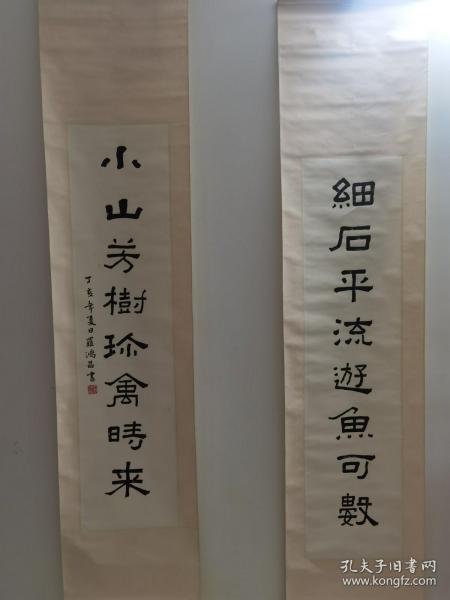 細石平流遊魚可數
小山芳樹珎禽時来
丁亥年夏日羅鴻昌書
孔夫子旧书网
www.kongfz.com